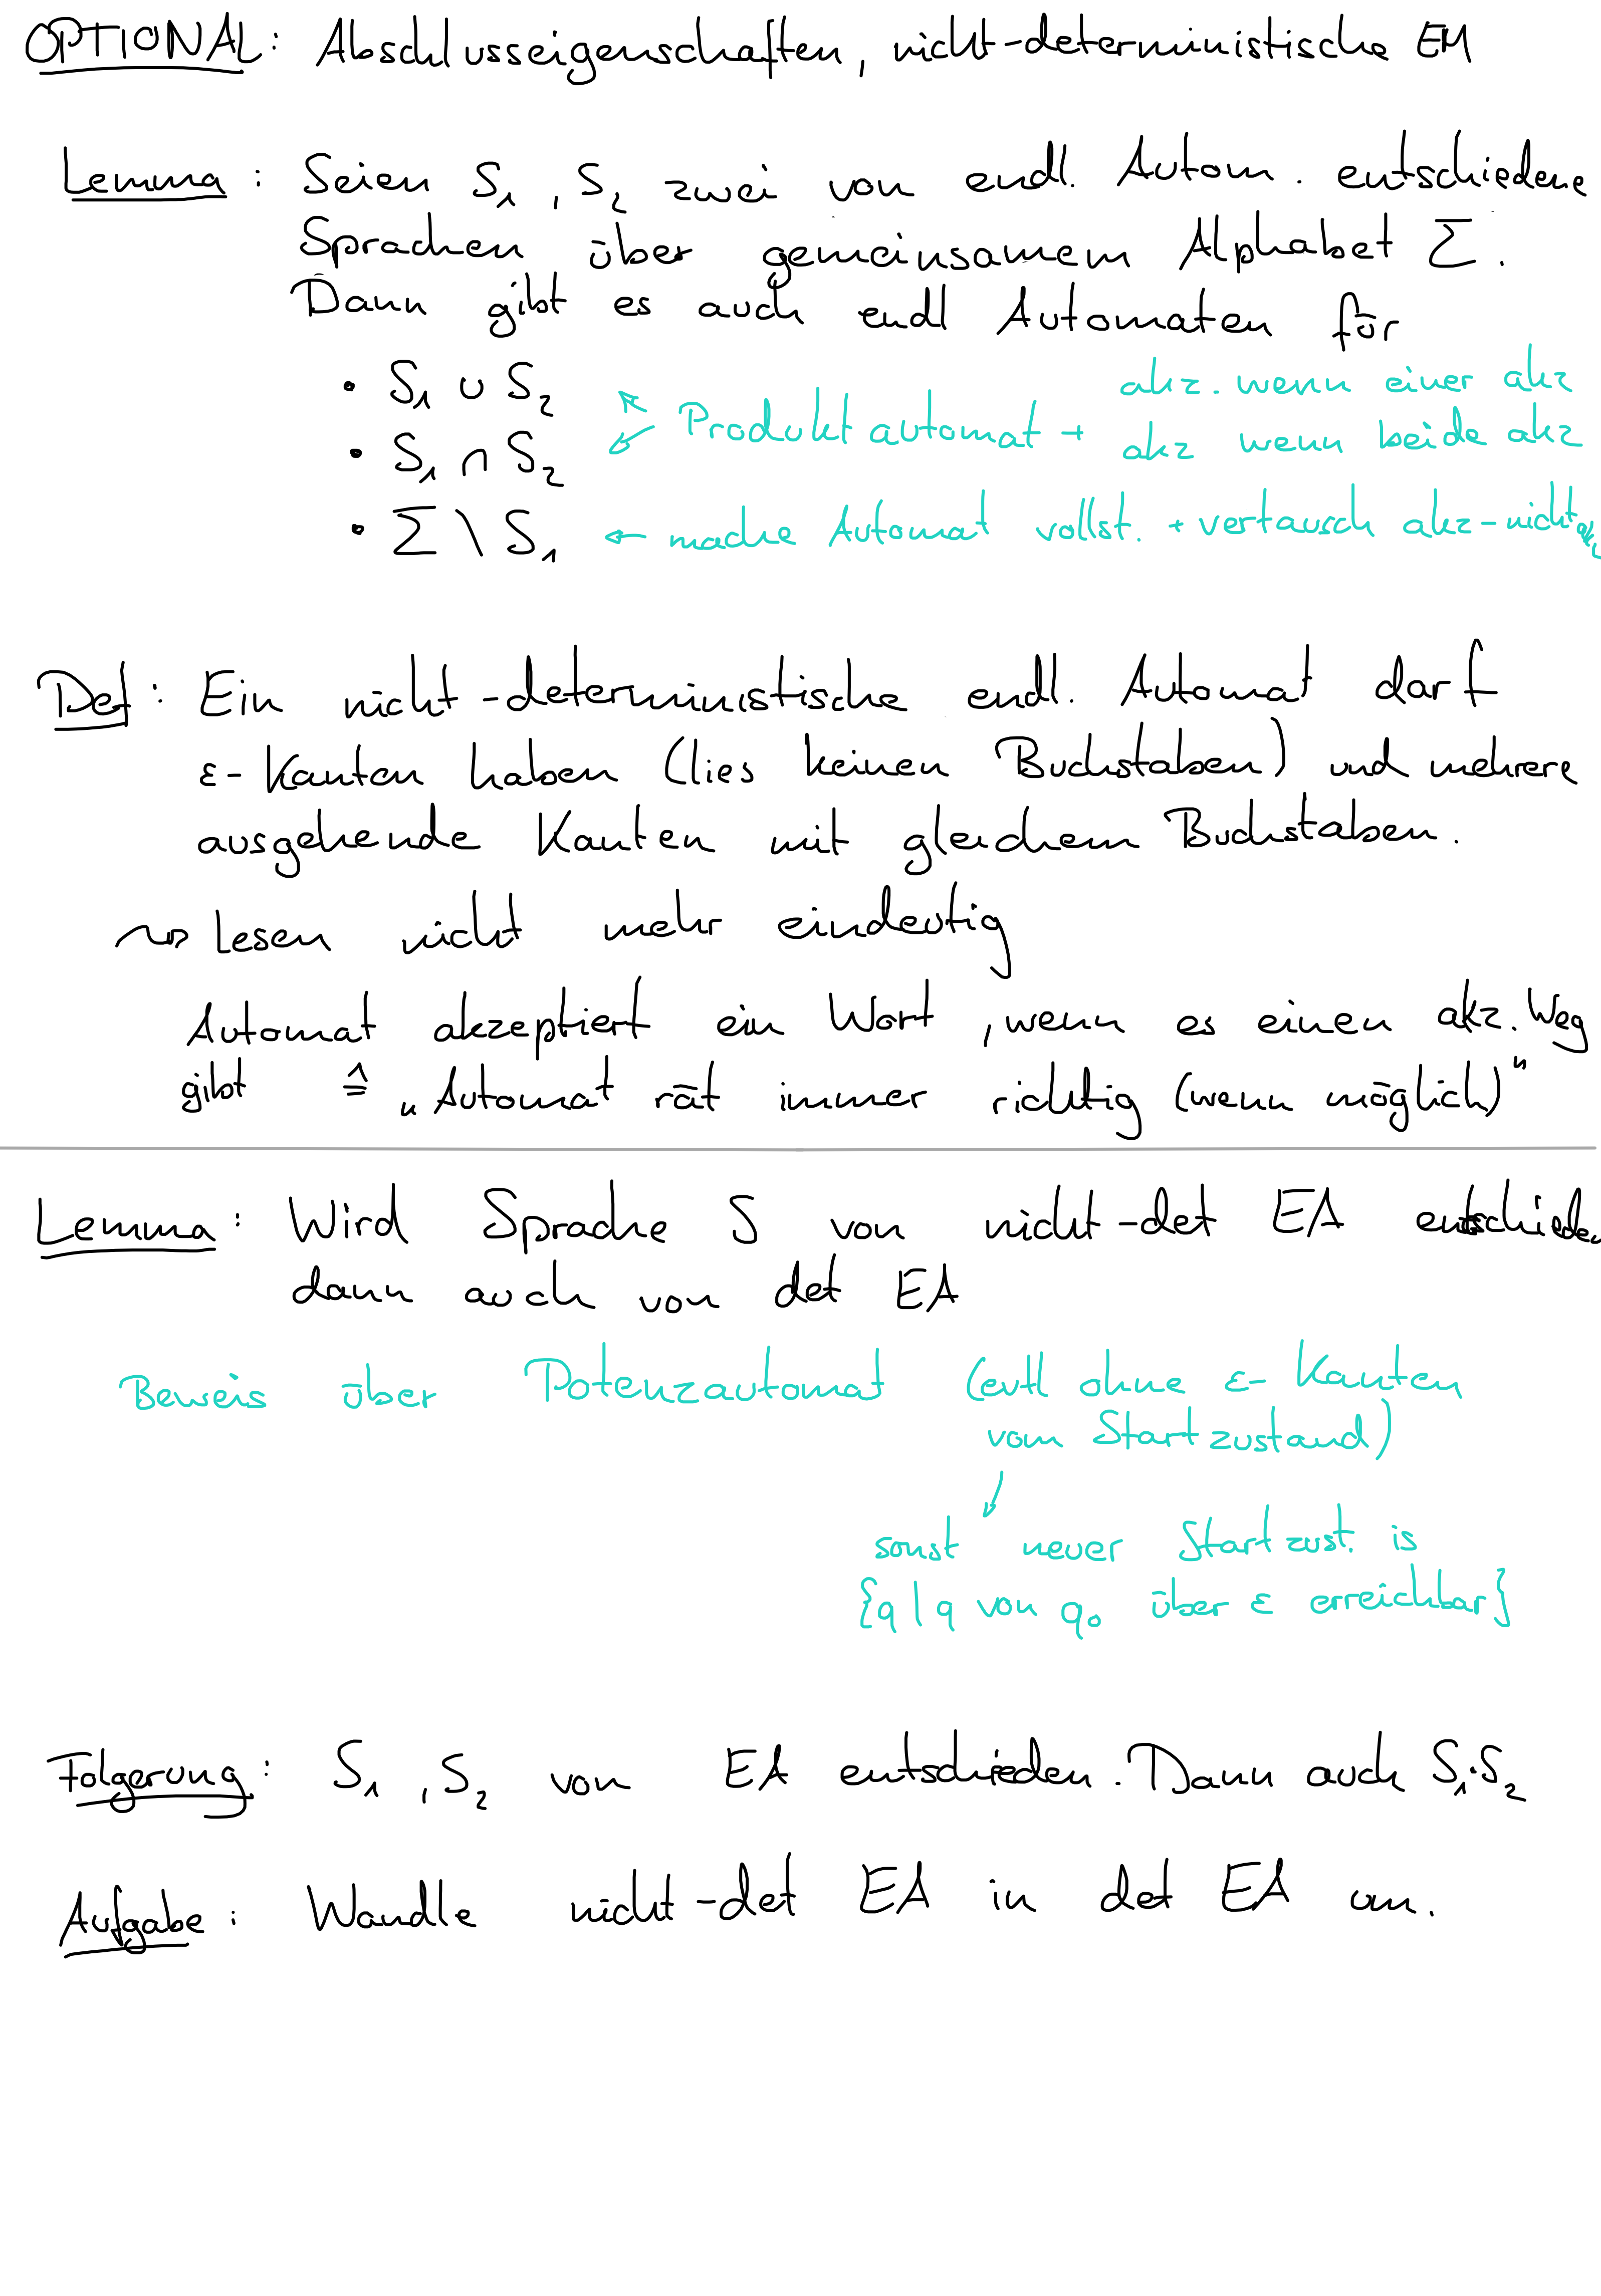 OPTIONAL: Abschlusseigenschaften, nicht-deterministische EM
Lemma: Seien S₁, S₂ zwei von endl. Autom. entschiedene
Sprachen über gemeinsamem Alphabet Σ.
Dann gibt es auch endl Automaten für
• S₁ ∪ S₂
akz. wenn einer akz
← Produktautomat +
akz wenn beide akz
• S₁ ∩ S₂
• Σ \ S₁ ← mache Automat vollst. + vertausch akz-nichtakz
Def: Ein nicht-deterministische endl. Automat darf
ε-Kanten haben (lies keinen Buchstaben) und mehrere
ausgehende Kanten mit gleichem Buchstaben.
⇝ Lesen nicht mehr eindeutig
Automat akzeptiert ein Wort, wenn es einen akz. Weg
gibt ≙ „Automat rät immer richtig (wenn möglich)"
Lemma: Wird Sprache S von nicht-det EA entschieden
dann auch von det EA
Beweis über Potenzautomat (evtl ohne ε-Kanten
vom Startzustand)
sonst neuer Startzust. is
{q | q von q₀ über ε erreichbar}
Folgerung: S₁, S₂ von EA entschieden. Dann auch S₁·S₂
Aufgabe: Wandle nicht-det EA in det EA um.